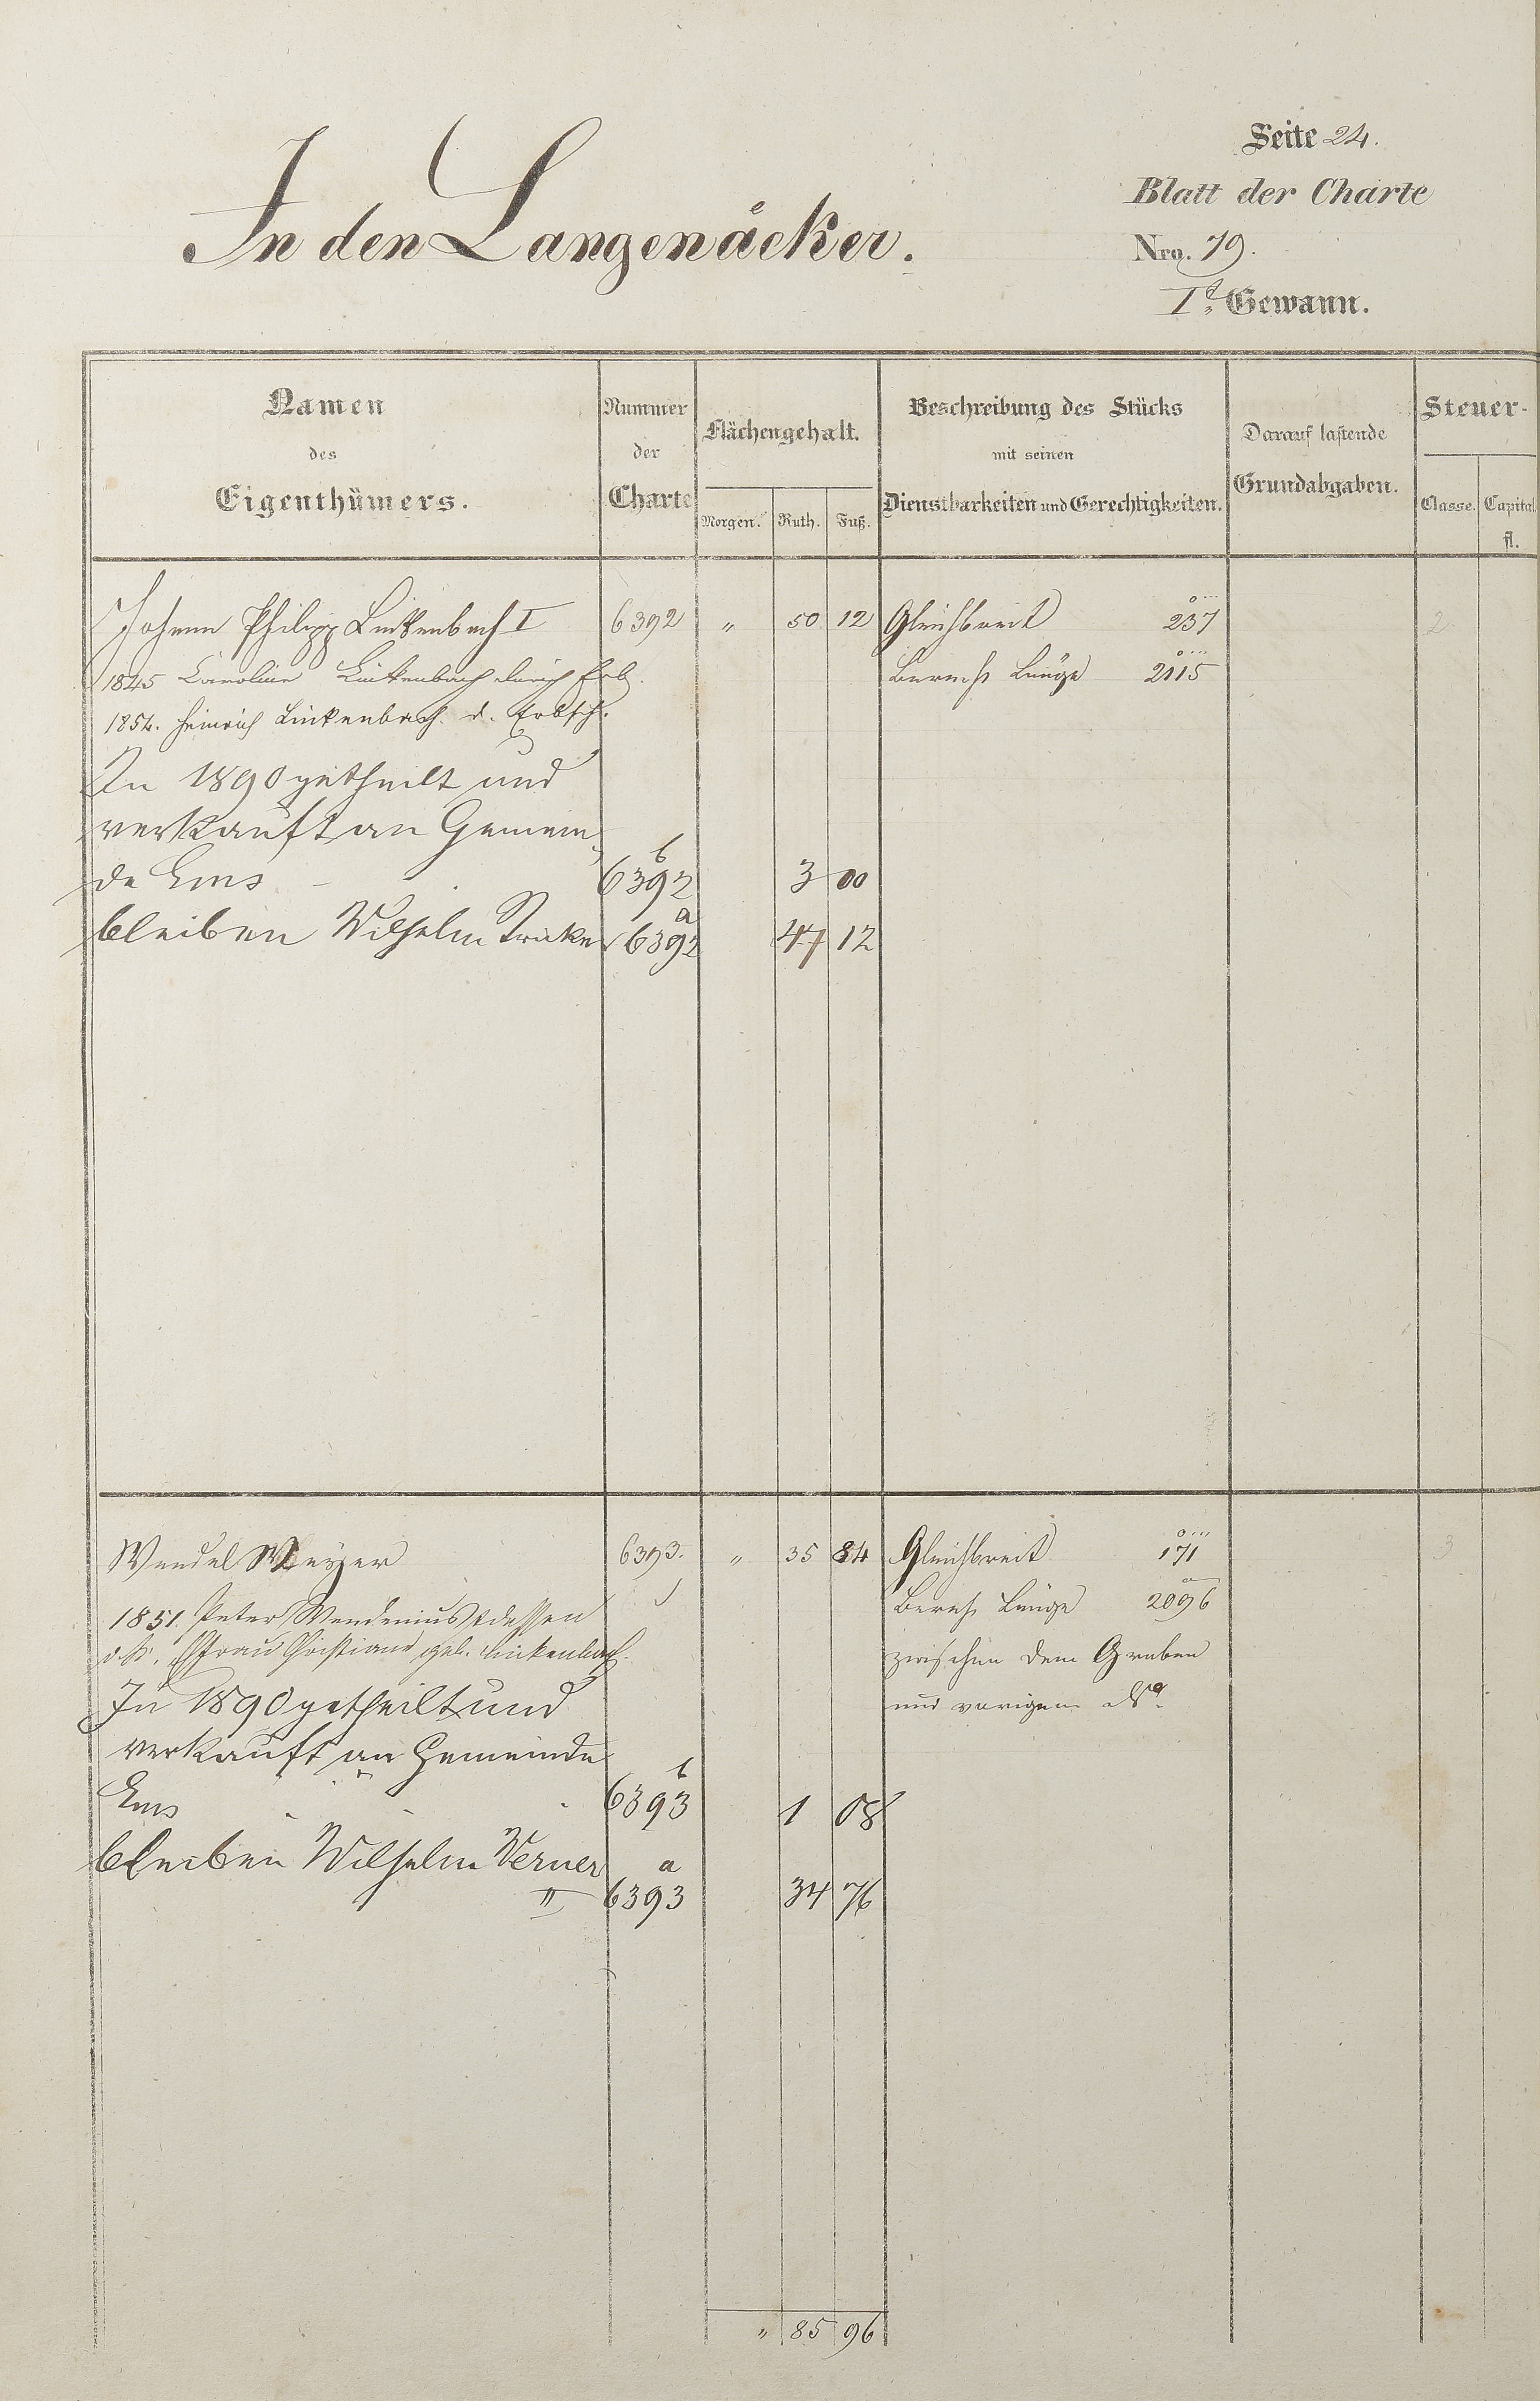 Seite 24.
In den Langenäcker.
Blatt der Charte
Nro. 19.
I.te Gewann.
Namen
des
Eigenthümers.
Nummer
der
Charte
Flächengehalt.
Morgen. Ruth. Fuß.
Beschreibung des Stücks
mit seinen
Dienstbarkeiten und Gerechtigkeiten.
Darauf lastende
Grundabgaben.
Steuer-
Classe. Capital
fl.
Johann Philipp Linkenbach I 6392 " 50 12 Gleichbreit 237 2
1845 Caroline Linkenbach durch Erb. Berech Länge 2115
1854. Heinrich Linkenbach d. Erbsch.
In 1890 getheilt und
verkauft an Gemein
de Ems 6392 b 3 00
bleiben Wilhelm 6392 a 47 12
Wendel Meyer 6393. " 35 84 Gleichbreit 171 3
1851. Peter Wendenius & dessen Berech Länge 2096
Efrau Christiane geb. Linkenbach. zwischen dem Graben
In 1890 getheilt und und vorigem No.
verkauft an Gemeinde
Ems 6393 b 1 08
bleiben Wilhelm Werner
II 6393 a 34 76
" 85 96